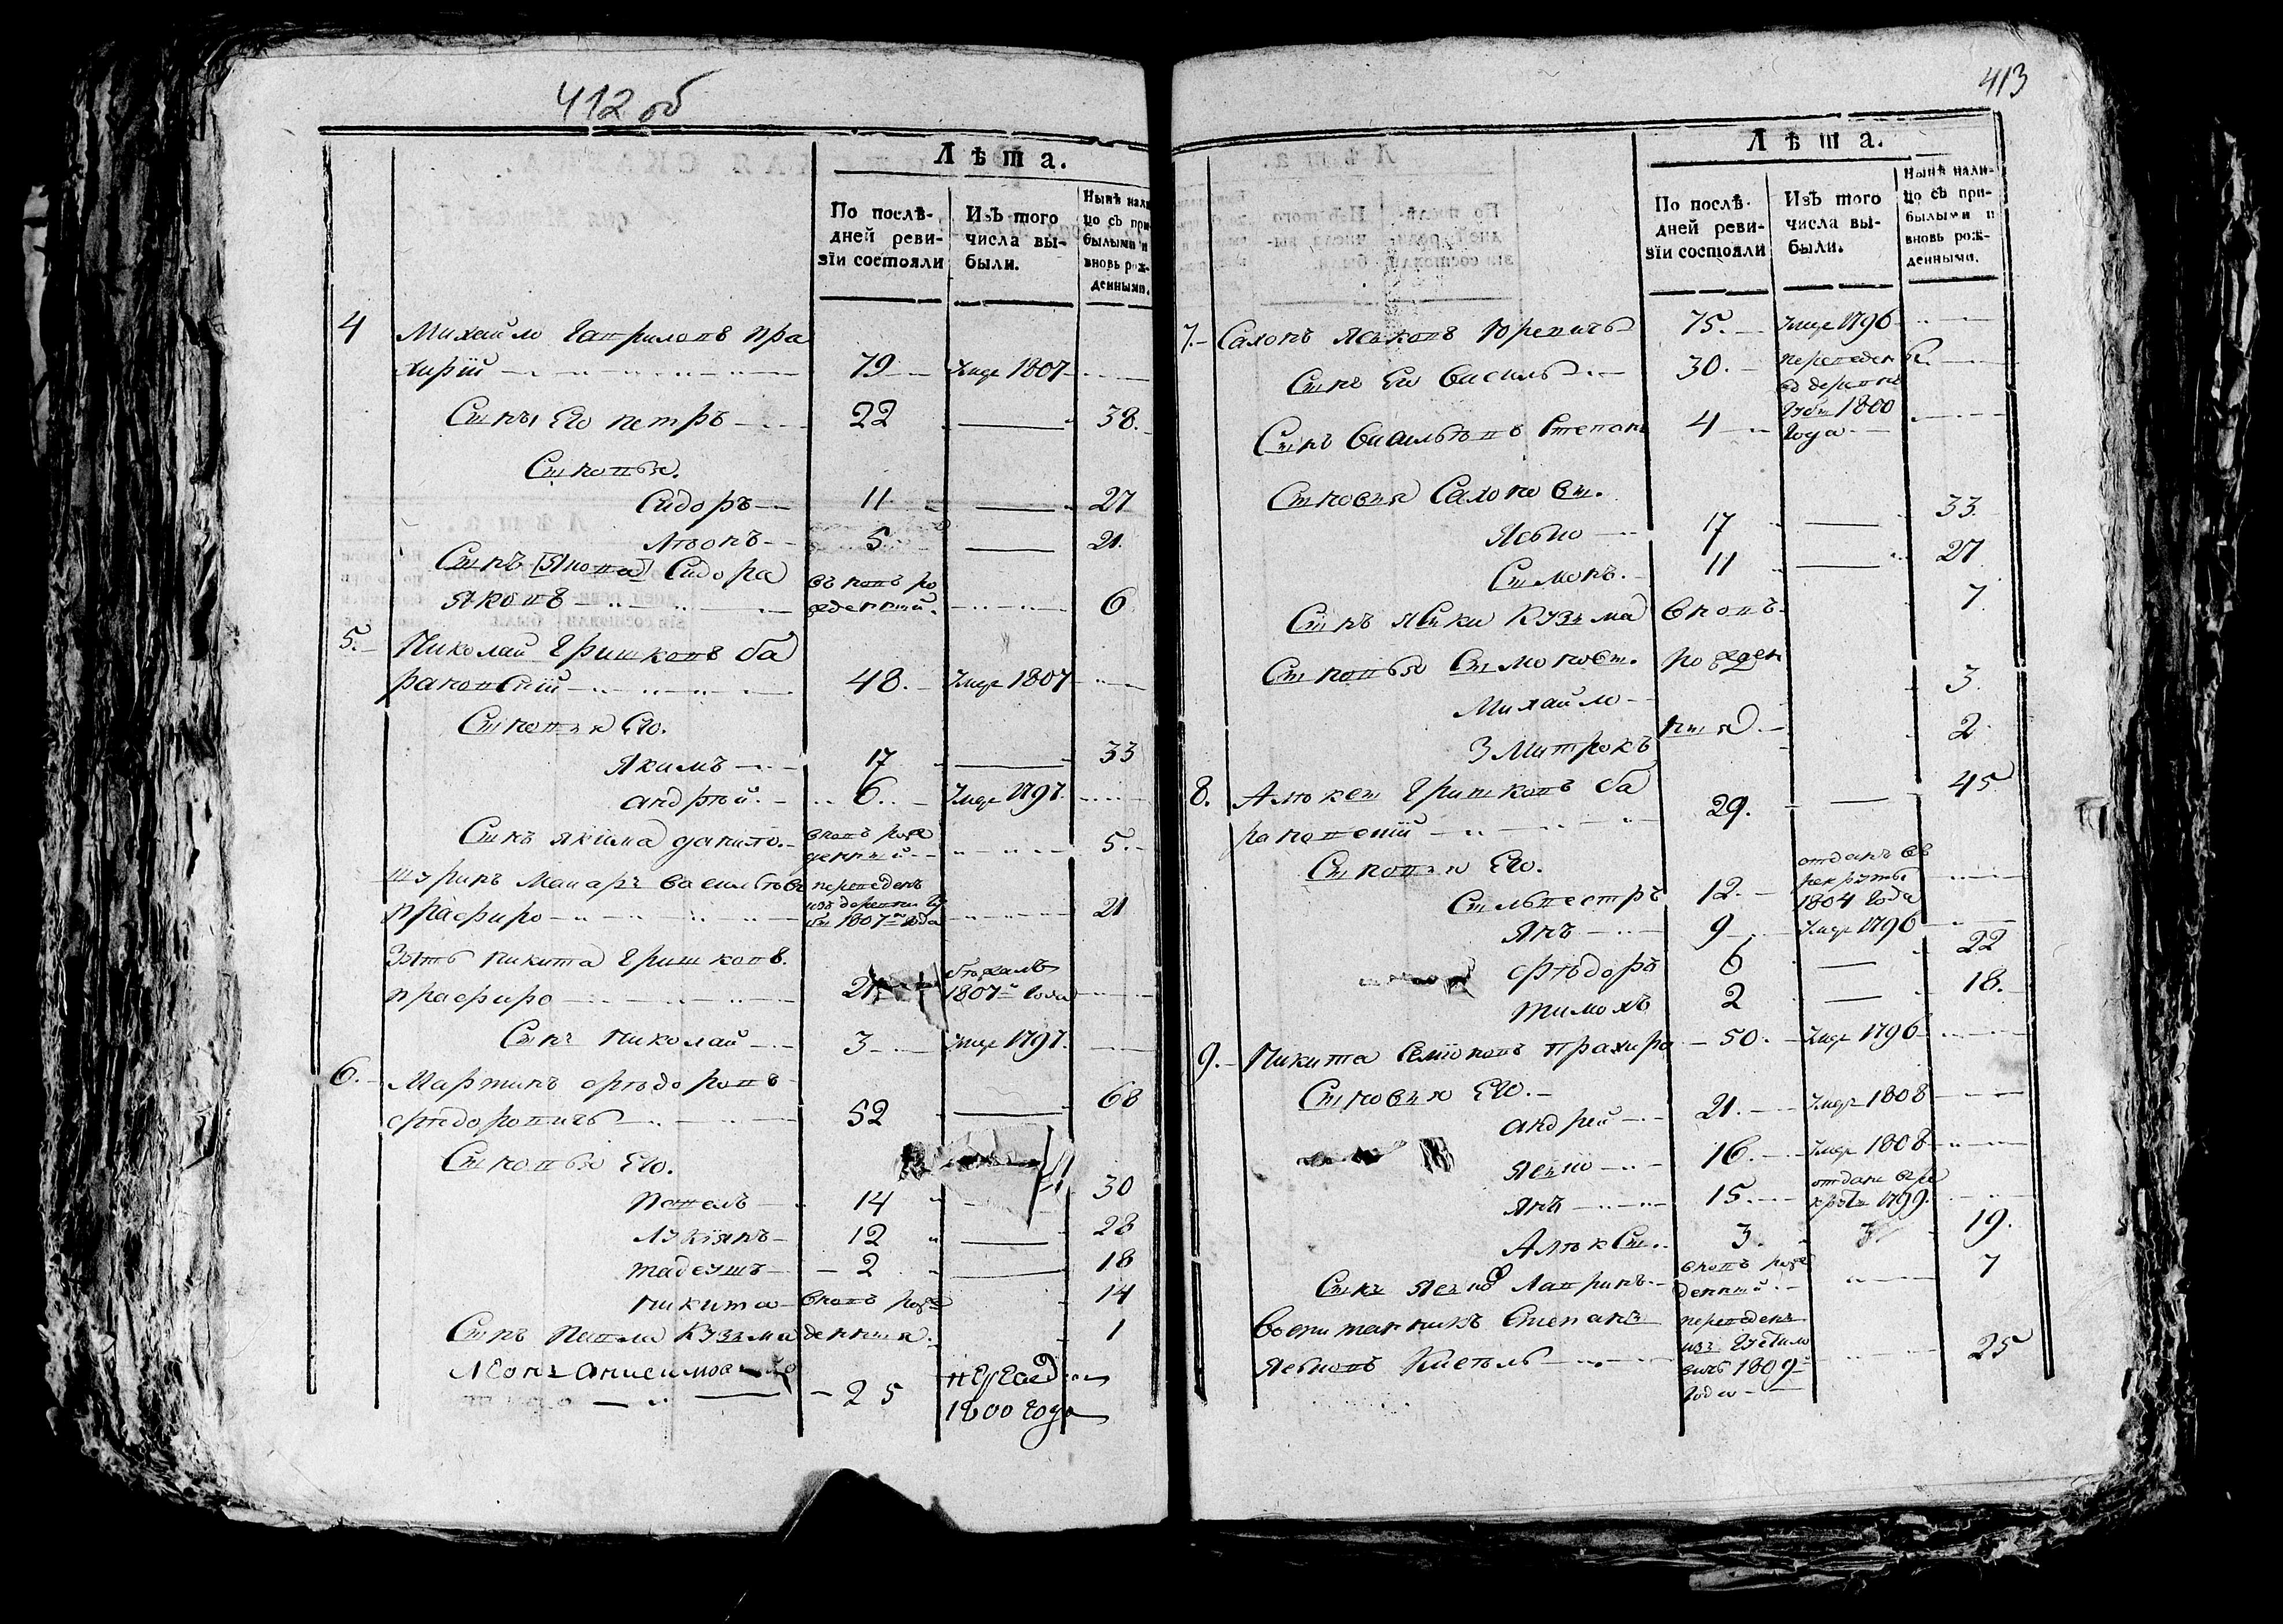 412 об
Лѣта.
По послѣ-
дней реви-
зїи состояли
Изъ того
числа вы-
были.
Нынѣ нали
цо съ при-
былыми и
вновь рож-
денными.
4 Михайло Гаприловъ пра
хирїй 79 Умре 1807
Сынъ Его петръ 22 38.
Сыновья.
Сидоръ 11 27
5 21.
Сынъ Сидора въновь ро
Яковъ жденный. 6
5. Николай Гришковъ ба
рановскїй 48. Умре 1807
Сыновья Его.
Якимъ 17 33
андрѣй. 6. Умре 1797.
Сынъ якима данило. вновь рож
денный 5.
шуринъ Макаръ васильевъ переведенъ
изъ деревни
прафиро 1807 года 21
Зять никита Гришковъ.
прафиро 21 бѣжалъ
1807 Года
Сынъ николай 3 Умре 1797.
6. Мартинъ фѣдоровъ 68
фѣдоровичъ 52
Сыновья Его.
павелъ 14 30
лукїянъ 12 28
тадеушъ 2 18
никита вновь рож 14
Сынъ павла кузма денныя. 1
Леонъ
25 переведен
1800 Года
413
Лѣта.
По послѣ-
дней реви-
зїи состояли
Изъ того
числа вы-
были.
Нынѣ нали-
цо съ при-
былыми и
вновь рож-
денными.
7. Сахонъ Юревичъ 75. Умре 1796
Сынъ Его василь 30. переведен
въ деревню
Сынъ Степанъ 4 1800
Года
Сыновья
17 33.
Сымонъ. 11 27
Сынъ кузьма вновь 7
Сыновья рожден
Михайло 3.
Змитрокъ ныя. 2
8. Алѣксы Гришковъ ба 29. 45
рановскїй
Сыновья Его.
Сыльвестръ 12. отданъ въ
рекруты
1804 Года
Янъ 9 Умре 1796
фѣдоръ 6 22
тимохъ 2 18.
9. Никита Семїоновъ прахиро 50. Умре 1796
Сыновья Его.
андрей 21. Умре 1808
16. Умре 1808
янъ 15. отданъ въре
круты 1799.
Алѣксы. 3. 19.
Сынъ Лавринъ вновь рож
денный. 7
воспитанникъ Степанъ переведенъ
изъ
1809 25
Года